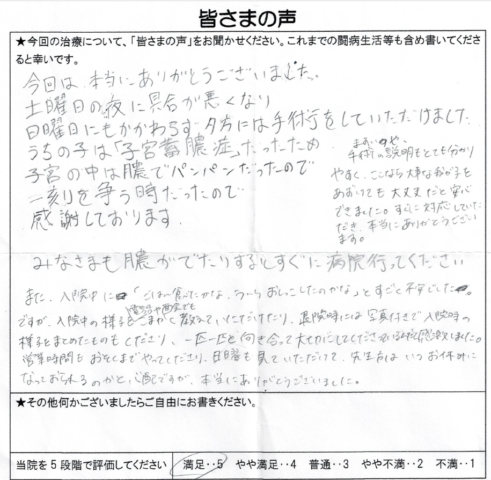 皆さまの声
★今回の治療について、「皆さまの声」をお聞かせください。これまでの闘病生活等も含め書いてくださ
ると幸いです。
今回は、本当にありがとうございました。
土曜日の夜に具合が悪くなり
日曜日にもかかわらず夕方には手術をしていただけました
うちの子は「子宮蓄膿症」だったため
子宮の中は膿でパンパンだったので
一刻を争う時だったので
感謝しております。
手術の説明もとても分かり
やすく、ここなら大事なお子を
あずけても大丈夫だと安心
できました。すぐに対応していた
だき、本当にありがとうござい
ます。
みなさまも膿がでたりするとすぐに病院行ってください
また、入院中に「ごはん食べたかな、うーらおしっこしたのかな」とすごく不安でした。
電話や面会でも
ですが、入院中の様子をこまかく教えていただけたり、退院時には写真付きで入院時の
様子をまとめたものもくださり、一匹一匹と向き合って大切にしてくださっている感激しました。
営業時間もおそくまでやってくださり、日曜も見ていただけて、先生方はいつお休みに
なっておられるのかと心配ですが、本当にありがとうございました。
★その他何かございましたらご自由にお書きください。
当院を5段階で評価してください 満足‥5 やや満足‥4 普通‥3 やや不満‥2 不満‥1